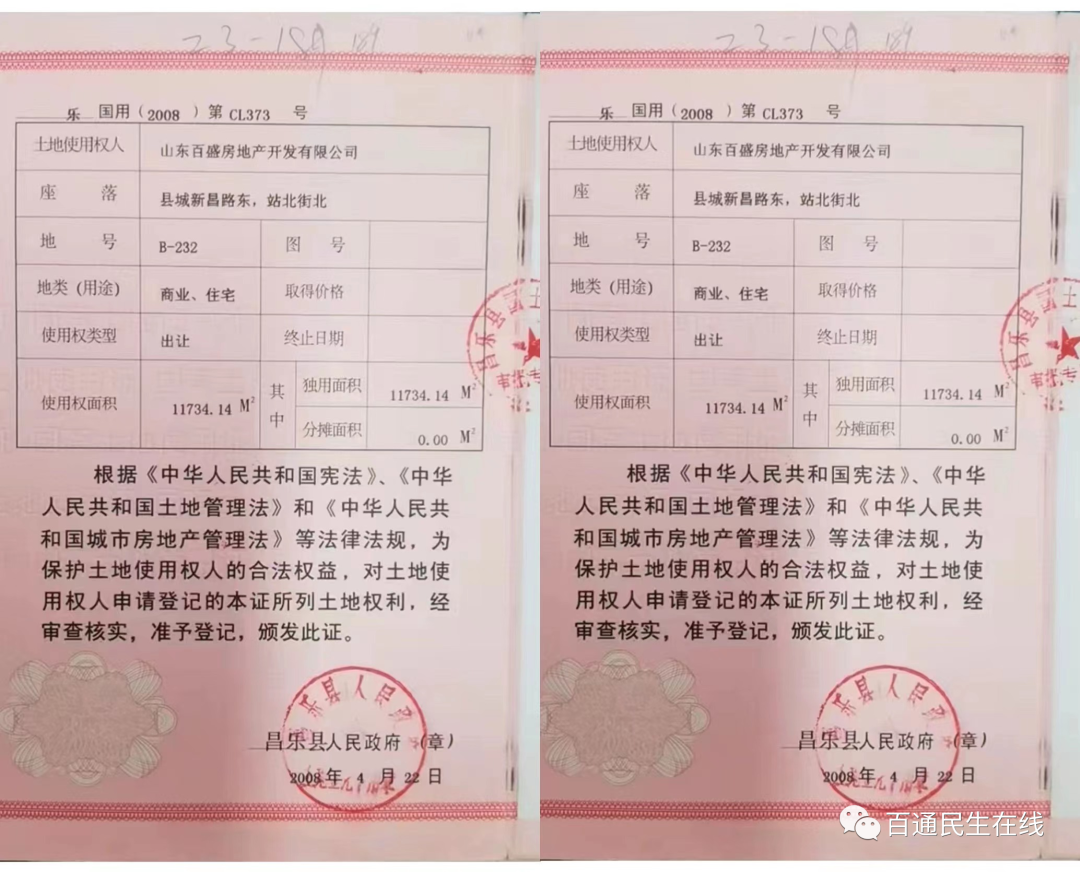 乐 国用（2008 ）第 CL373 号
土地使用权人 山东百盛房地产开发有限公司
座 落 县城新昌路东，站北街北
地 号 B-232 图 号
地类（用途） 商业、住宅 取得价格
使用权类型 出让 终止日期
使用权面积 11734.14 M² 其中 独用面积 11734.14 M²
分摊面积 0.00 M²
根据《中华人民共和国宪法》、《中华
人民共和国土地管理法》和《中华人民共
和国城市房地产管理法》等法律法规，为
保护土地使用权人的合法权益，对土地使
用权人申请登记的本证所列土地权利，经
审查核实，准予登记，颁发此证。
昌乐县人民政府（章）
2008 年 4 月 22 日
乐 国用（2008 ）第 CL373 号
土地使用权人 山东百盛房地产开发有限公司
座 落 县城新昌路东，站北街北
地 号 B-232 图 号
地类（用途） 商业、住宅 取得价格
使用权类型 出让 终止日期
使用权面积 11734.14 M² 其中 独用面积 11734.14 M²
分摊面积 0.00 M²
根据《中华人民共和国宪法》、《中华
人民共和国土地管理法》和《中华人民共
和国城市房地产管理法》等法律法规，为
保护土地使用权人的合法权益，对土地使
用权人申请登记的本证所列土地权利，经
审查核实，准予登记，颁发此证。
昌乐县人民政府（章）
2008 年 4 月 22 日
百通民生在线